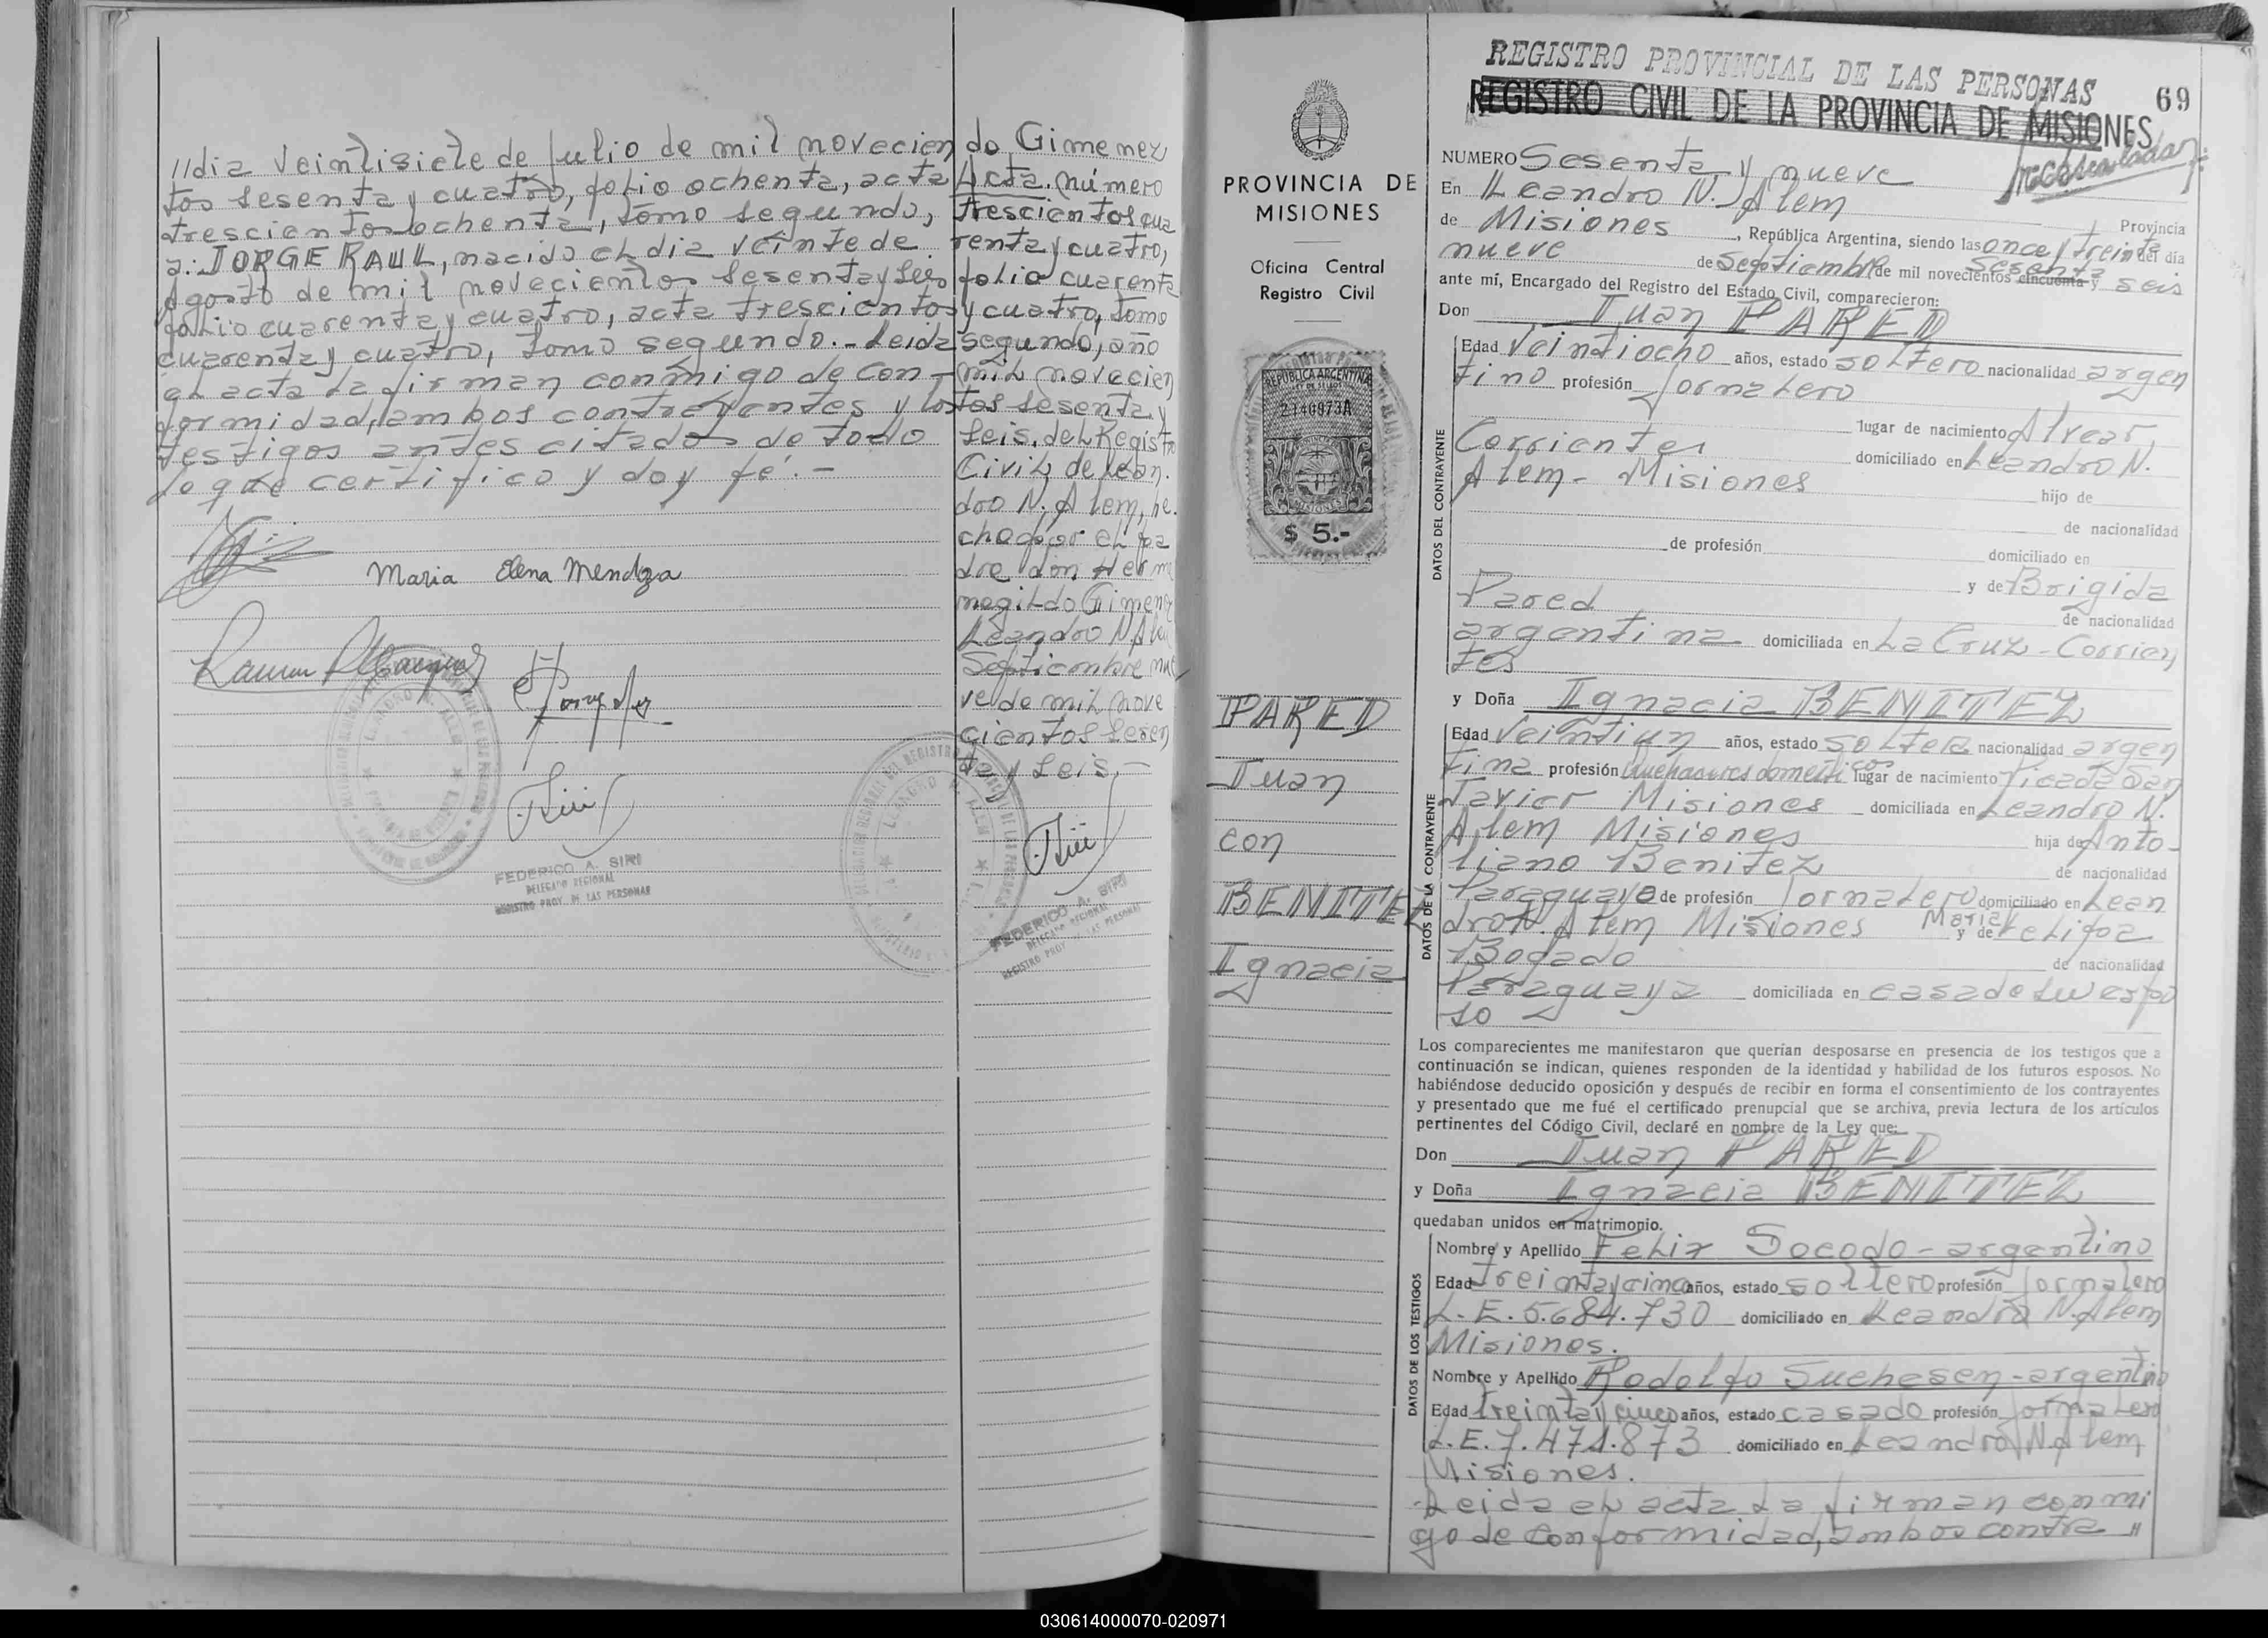 //dia veintisiete de Julio de mil novecien
tos sesenta y cuatro, folio ochenta, acta
trescientos ochenta, tomo segundo,
a: JORGE RAUL, nacido el dia veinte de
Agosto de mil novecientos sesenta y seis
folio cuarenta y cuatro, acta trescientos
cuarenta y cuatro, tomo segundo.- Leida
el acta la firman conmigo de con-
formidad, ambos contrayentes y los
testigos antes citados de todo
lo que certifico y doy fé.-
Maria Elena Mendoza
FEDERICO A. SIRI
DELEGADO REGIONAL
REGISTRO PROV. DE LAS PERSONAS
do Gimenez
Acta. número
trescientos cua
renta y cuatro,
folio cuarenta
y cuatro, tomo
segundo, año
mil novecien
tos sesenta y
seis, del Registro
Civil de Lean.
dro N. Alem, he.
cha por el pa
dre don Herme
negildo Gimenez
Leandro N. Alem
Septiembre nue
ve de mil nove
cientos sesen
ta y seis.-
FEDERICO A. SIRI
DELEGADO REGIONAL
REGISTRO PROV. DE LAS PERSONAS
PROVINCIA DE
MISIONES
Oficina Central
Registro Civil
REPUBLICA ARGENTINA
2140873A
MISIONES
$ 5.-
PARED
Juan
con
BENITEZ
Ignacia
REGISTRO PROVINCIAL DE LAS PERSONAS
69
REGISTRO CIVIL DE LA PROVINCIA DE MISIONES
NUMERO Sesenta y nueve
En Leandro N. Alem
Provincia
de Misiones, República Argentina, siendo las once y treinta del día
nueve de Septiembre de mil novecientos cincuenta y sesenta seis
ante mí, Encargado del Registro del Estado Civil, comparecieron:
Don Juan PARED
DATOS DEL CONTRAYENTE
Edad Veintiocho años, estado soltero nacionalidad argen
tino profesión Jornalero
lugar de nacimiento Alvear,
Corrientes domiciliado en Leandro N.
Alem - Misiones hijo de
de nacionalidad
de profesión domiciliado en
y de Brigida
Pared de nacionalidad
argentina domiciliada en La Cruz - Corrien
tes
y Doña Ignacia BENITEZ
DATOS DE LA CONTRAYENTE
Edad Veintiun años, estado soltera nacionalidad argen
tina profesión quehaceres domesticos lugar de nacimiento Picada San
Javier Misiones domiciliada en Leandro N.
Alem Misiones hija de Anto-
liano Benitez de nacionalidad
Paraguaya de profesión Jornalero domiciliado en Lean
dro N. Alem Misiones y de Maria Felipa
Bogado de nacionalidad
Paraguaya domiciliada en casa de su espo
so
Los comparecientes me manifestaron que querían desposarse en presencia de los testigos que a
continuación se indican, quienes responden de la identidad y habilidad de los futuros esposos. No
habiéndose deducido oposición y después de recibir en forma el consentimiento de los contrayentes
y presentado que me fué el certificado prenupcial que se archiva, previa lectura de los artículos
pertinentes del Código Civil, declaré en nombre de la Ley que:
Don Juan PARED
y Doña Ignacia BENITEZ
quedaban unidos en matrimonio.
DATOS DE LOS TESTIGOS
Nombre y Apellido Felix Socodo - argentino
Edad Treinta y cinco años, estado soltero profesión Jornalero
L.E. 5.684.730 domiciliado en Leandro N. Alem
Misiones.
Nombre y Apellido Rodolfo Suchesen - argentino
Edad treinta y cinco años, estado casado profesión Jornalero
L.E. 7.471.873 domiciliado en Leandro N. Alem
Misiones.
Leida el acta la firman conmi
go de conformidad, ambos contra //
030614000070-020971